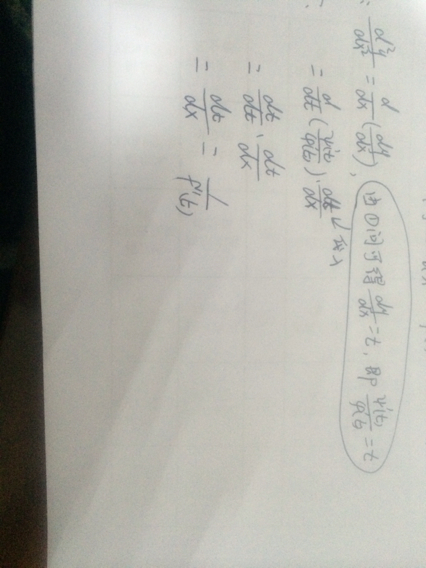 = d²y/dx² = d/dx (dy/dx), 由①问可得 dy/dx = t, 即 ψ'(t)/φ'(t) = t
= d/dt (ψ'(t)/φ'(t)) · dt/dx
= dt/dt · dt/dx
= dt/dx = 1/φ'(t)